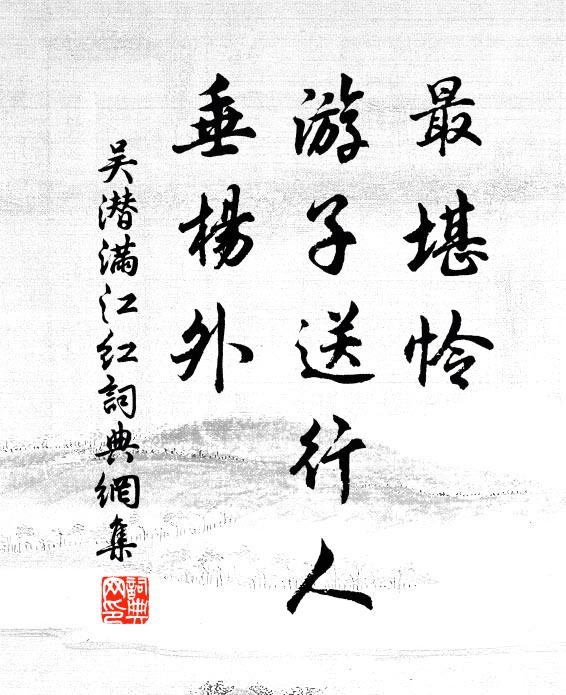 最堪怜
游子送行人
垂楊外
吴潜满江红詞典網集
詞典
网印